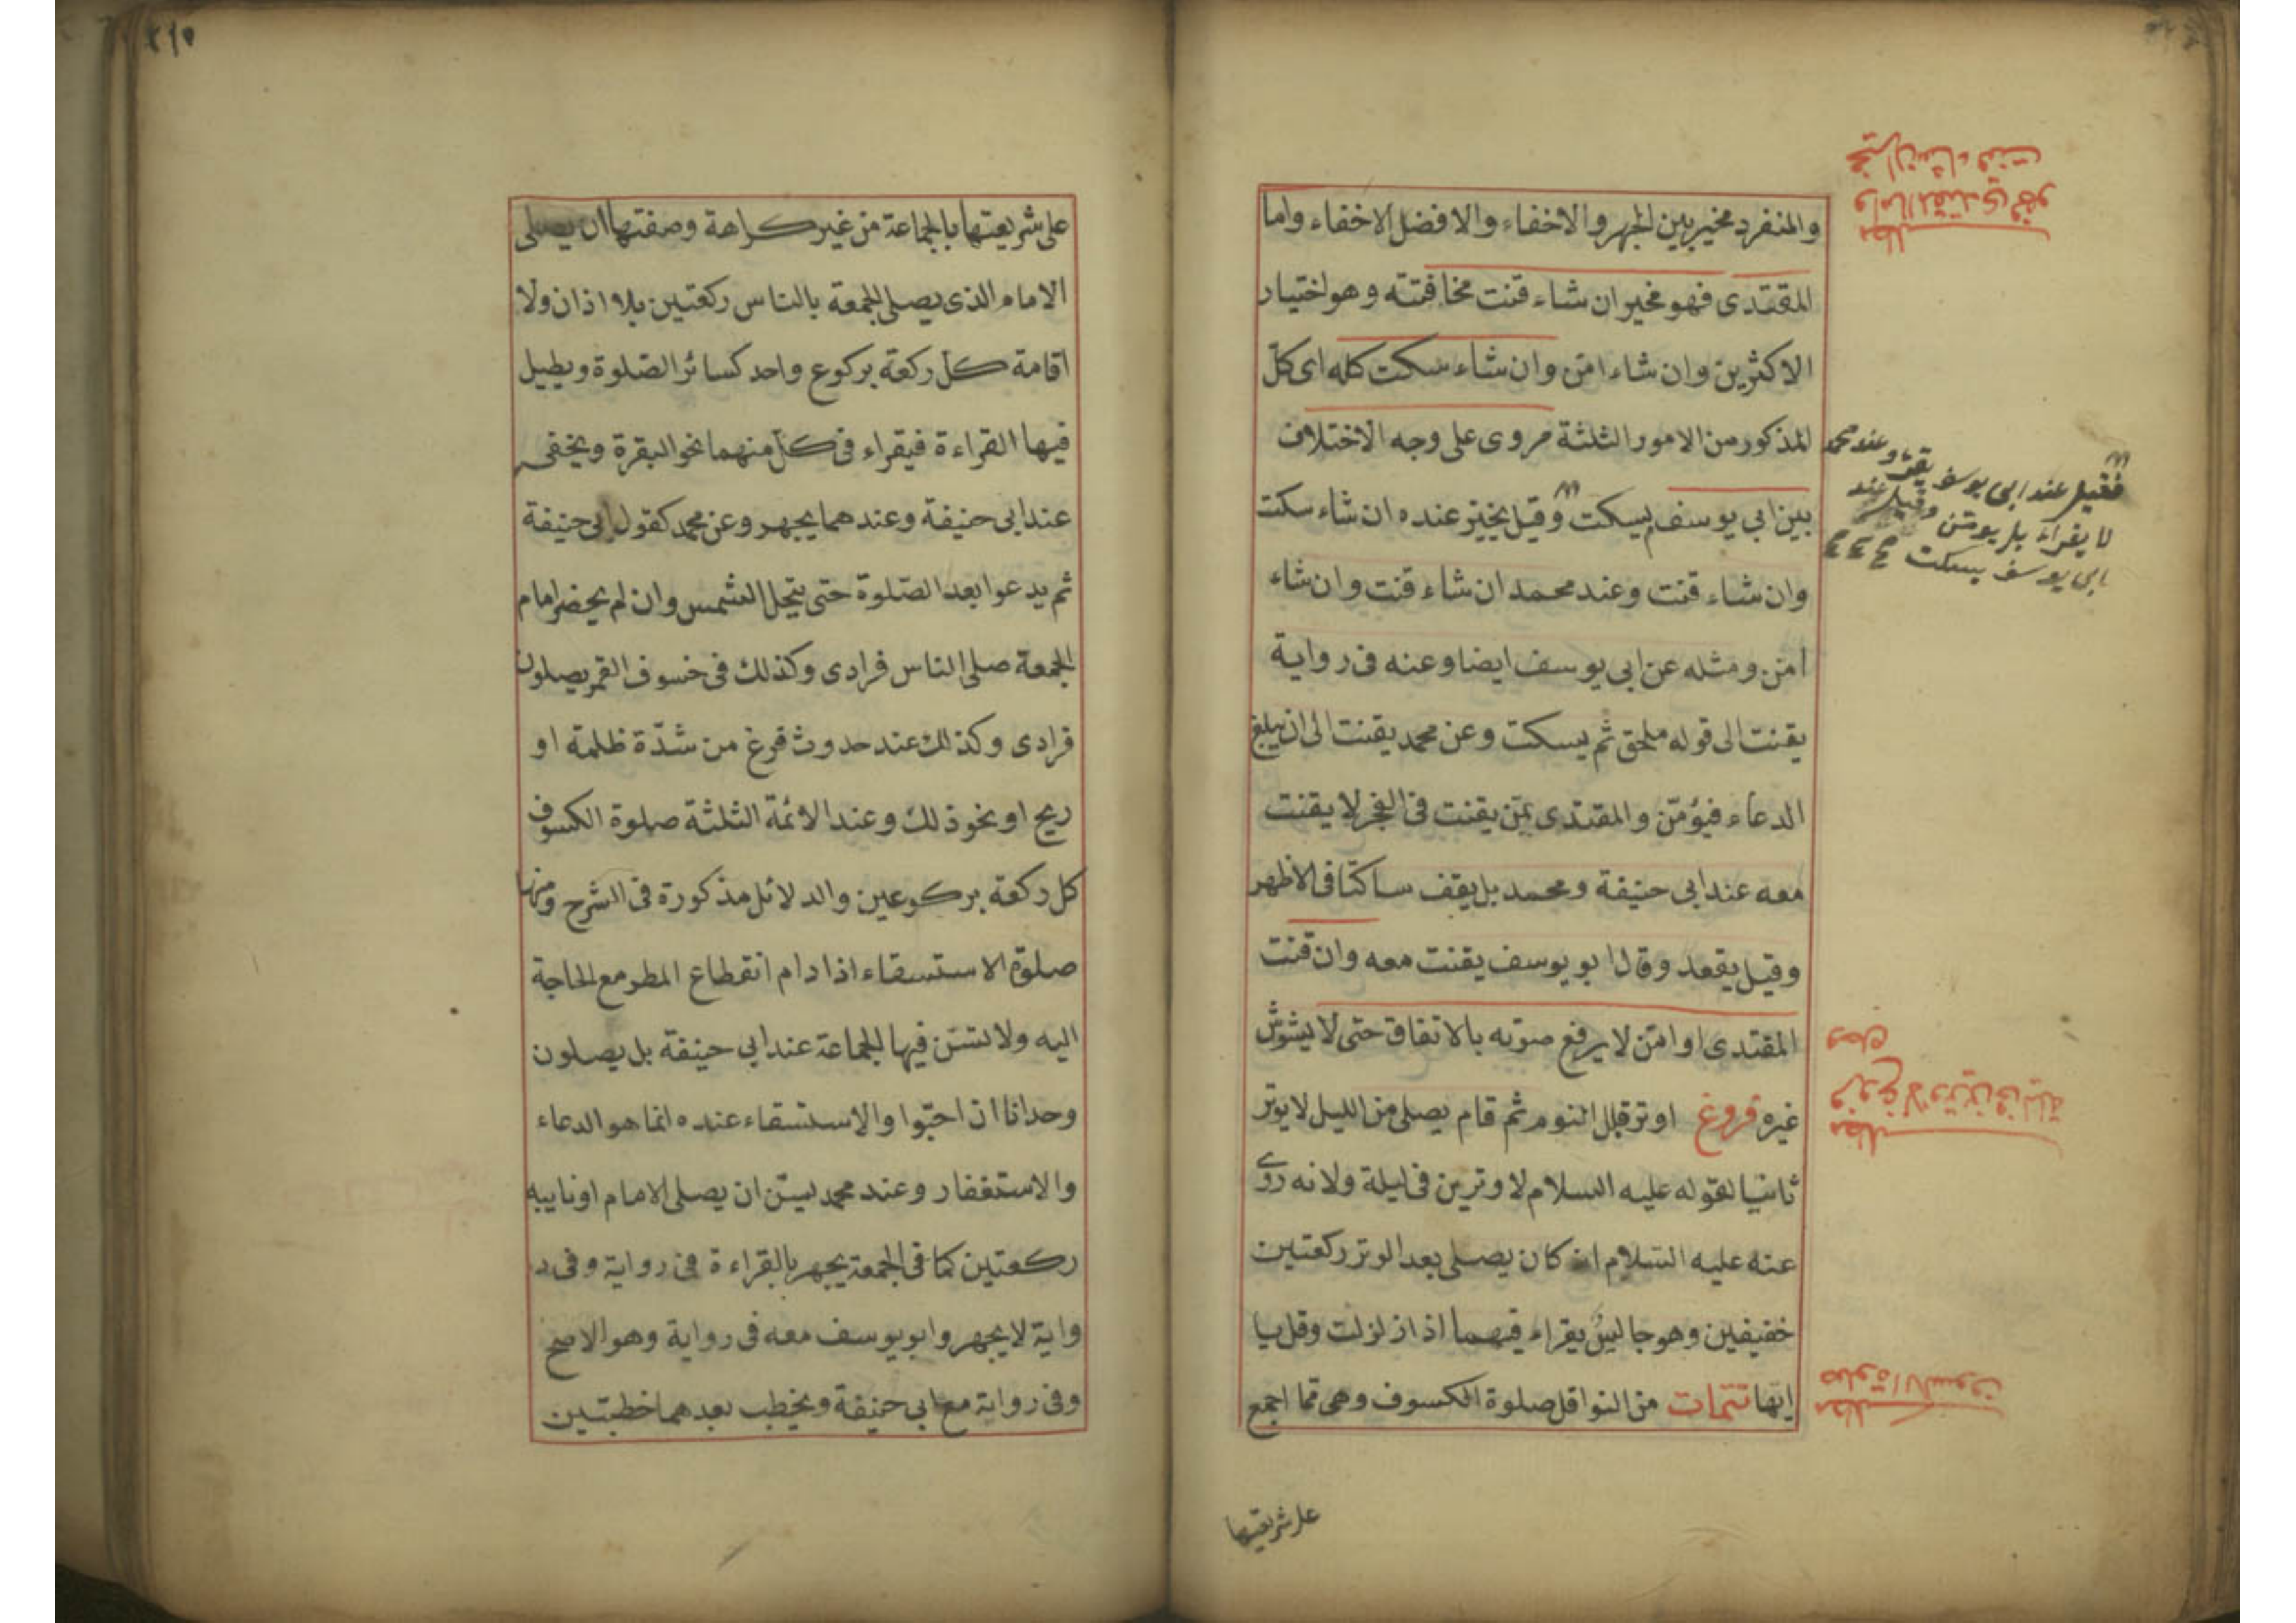 والمنفرد مخير بين الجهر والاخفاء والافضل الاخفاء واما
المقتدى فهو مخير ان شاء قنت مخافتته وهو اختيار
الاكثرين وان شاء امّن وان شاء سكت كله اى كلّ
المذكور من الامور الثلثة مروى على وجه الاختلاف
بين ابي يوسف يسكت وقيل يخيّر عنده ان شاء سكت
وان شاء قنت وعند محمد ان شاء قنت وان شاء
امن ومثله عن ابي يوسف ايضا وعنه فى رواية
يقنت الى قوله ملحق ثم يسكت وعن محمد يقنت الى ان يبلغ
الدعاء فيؤمّن والمقتدى بمن يقنت فى الفجر لا يقنت
معه عند ابي حنيفة ومحمد بل يقف ساكتا فى الاظهر
وقيل يقعد وقال ابو يوسف يقنت معه وان قنت
المقتدى او امّن لا يرفع صوته بالاتفاق حتى لا يشوش
غيره فروغ اوتر قبل النوم ثم قام يصلى من الليل لا يوتر
ثانيا لقوله عليه السلام لا وترين فى ليلة ولانه روى
عنه عليه السلام انه كان يصلى بعد الوتر ركعتين
خفيفين وهو جالس يقراء فيهما اذا زلزلت وقل يا
ايّها تتمات من النوافل صلوة الكسوف وهى مما اجمع
على شريعتها
مطلب
واما المقتدى فهو
مخير ان شاء قنت
فقيل عند ابى يوسف يقنت وعند محمد
لا يقراء بل يومّن وقيل عند
ابى يوسف يسكت
مطلب
فروع لا وترين فى ليلة
مطلب
صلوة الكسوف
٢١٥
على شريعتها بالجماعة من غير كراهة وصفتها ان يصلى
الامام الذى يصلى الجمعة بالناس ركعتين بلا اذان ولا
اقامة كل ركعة بركوع واحد كسائر الصّلوة ويطيل
فيها القراءة فيقراء فى كلّ منهما نحو البقرة ويخفى
عند ابى حنيفة وعندهما يجهر وعن محمد كقول ابى حنيفة
ثم يدعوا بعد الصّلوة حتى تنجلى الشمس وان لم يحضر امام
الجمعة صلى الناس فرادى وكذلك فى خسوف القمر يصلون
فرادى وكذلك عند حدوث فزغ من شدّة ظلمة او
ريح او نحو ذلك وعند الائمة الثلثة صلوة الكسوف
كل ركعة بركوعين والدلائل مذكورة فى الشرح ومنها
صلوة الاستسقاء اذا دام انقطاع المطر مع الحاجة
اليه ولا تسنّ فيها الجماعة عند ابي حنيفة بل يصلون
وحدانا ان احبّوا والاستسقاء عنده انما هو الدعاء
والاستغفار وعند محمد يسنّ ان يصلى الامام او نايبه
ركعتين كما فى الجمعة يجهر بالقراءة فى رواية وفى ر
واية لا يجهر وابو يوسف معه فى رواية وهو الاصح
وفى رواية مع ابى حنيفة ويخطب بعدهما خطبتين